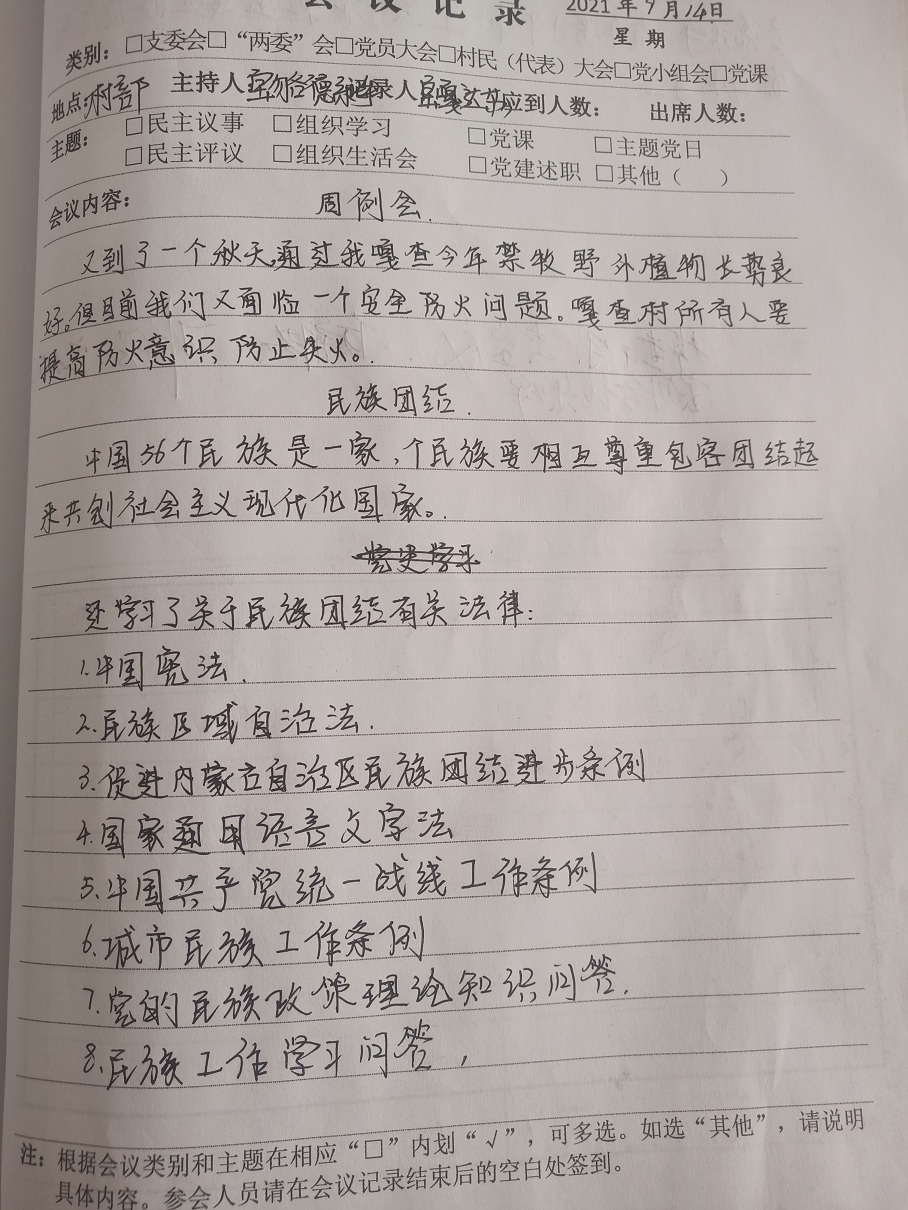 会议记录 2021年9月14日
星期
类别：□支委会□“两委”会□党员大会□村民（代表）大会□党小组会□党课
地点：村部 主持人： 记录人： 应到人数： 出席人数：
主题： □民主议事 □组织学习 □党课 □主题党日
□民主评议 □组织生活会 □党建述职 □其他（ ）
会议内容： 周例会.
又到了一个秋天，通过我嘎查今年禁牧野外植物长势良
好。但目前我们又面临一个安全防火问题。嘎查村所有人要
提高防火意识防止失火。
民族团结.
中国56个民族是一家、个民族要相互尊重包容团结起
来共创社会主义现代化国家。
还学习了关于民族团结有关法律：
1.中国宪法.
2.民族区域自治法.
3.促进内蒙古自治区民族团结进步条例
4.国家通用语言文字法
5.中国共产党统一战线工作条例
6.城市民族工作条例
7.党的民族政策理论知识问答.
8.民族工作学习问答，
注：根据会议类别和主题在相应“□”内划“√”，可多选。如选“其他”，请说明
具体内容。参会人员请在会议记录结束后的空白处签到。